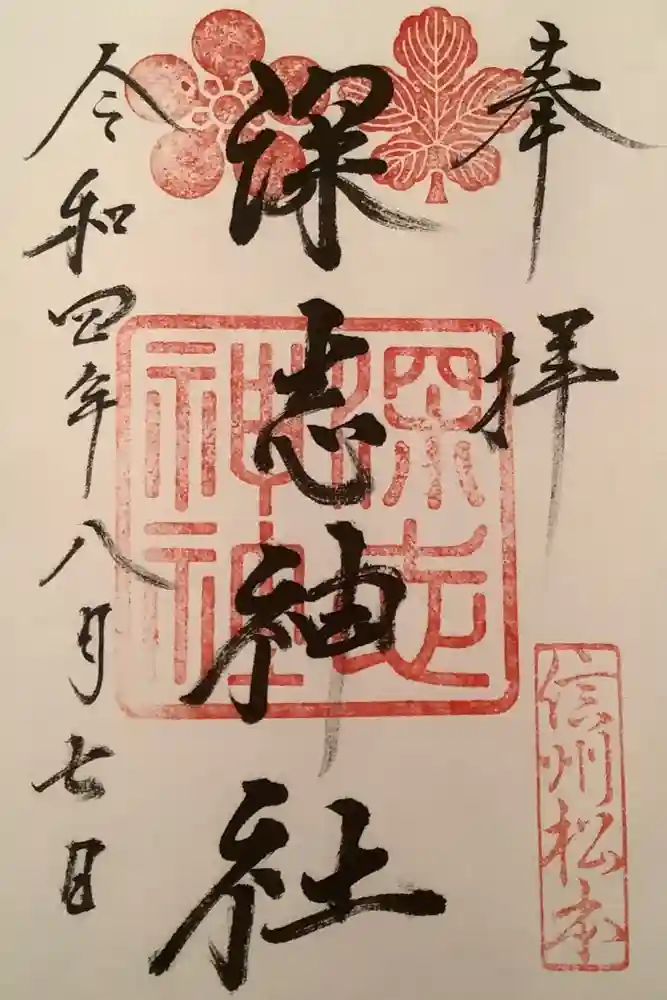 奉拝
信州松本
深志神社
深志神社
令和四年八月七日